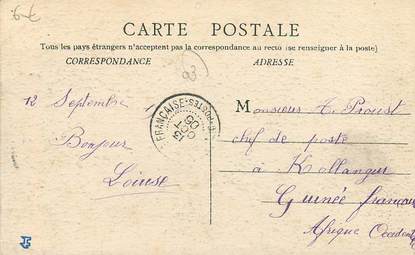 6-€
CARTE POSTALE
Tous les pays étrangers n'acceptent pas la correspondance au recto (se renseigner à la poste)
CORRESPONDANCE
ADRESSE
93
12 Septembre
Bonjour
Louise
FRANÇAISE POSTES
15
OCT
05
Monsieur A. Proust
chef de poste
à Kollangui
Guinée française
Afrique Occident